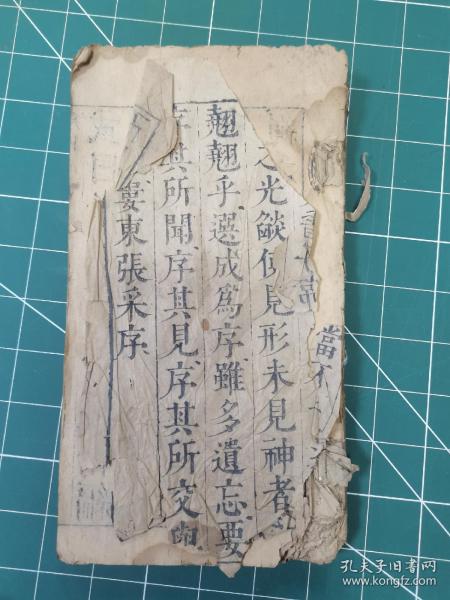 當不
之光燄使見形未見神者
翹翹乎選成爲序雖多遺忘要
序其所聞序其見序其所交
婁東張采序
孔夫子旧书网
www.kongfz.com